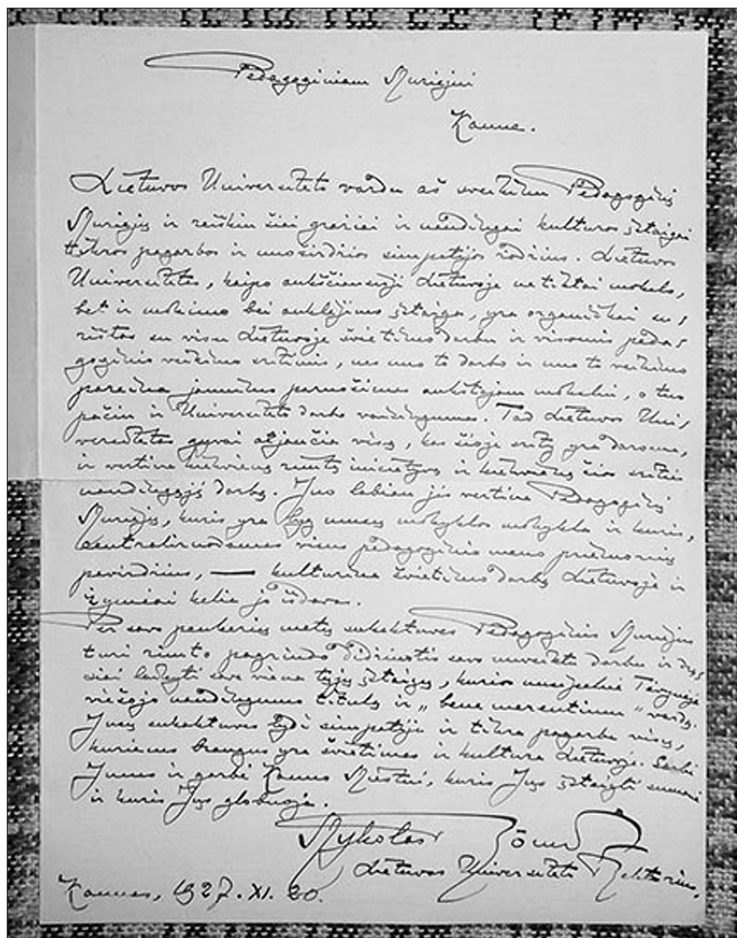 Pedagoginiam Muziejui
Kaune.
Lietuvos Universiteto vardu aš sveikinu Pedagoginį
Muziejų ir reiškiu šiai gražiai ir naudingai kulturos įstaigai
tikros pagarbos ir nuoširdžios simpatijos žodžius. Lietuvos
Universitetas, kaipo aukščiausioji Lietuvoje ne tiktai mokslo,
bet ir mokimo bei auklėjimo įstaiga, yra organiškai su,
rištas su visu Lietuvoje švietimo darbu ir visomis peda,
goginio veikimo sritimis, nes nuo to darbo ir nuo to veikimo
pareina jaunimo paruošimas aukštajam mokslui, o tuo
pačiu ir Universiteto darbo vaisingumas. Tad Lietuvos Uni,
versitetas gyvai atjaučia visa, kas šioje srity yra daroma,
ir vertina kiekvieną rimtą iniciatyvą ir kiekvieną šios srities
naudingąjį darbą. Juo labiau jis vertina Pedagoginį
Muziejų, kuris yra lyg mūsų mokyklos mokykla ir kuris,
centralizuodamas visus pedagoginio meno priemonių
pavyzdžius, — kulturina švietimo darbą Lietuvoje ir
žymiai kelia jo išdavas.
Per savo penkerių metų sukaktuves Pedagoginis Muziejus
turi rimto pagrindo didžiuotis savo nuveiktu darbu ir drą,
siai laikyti save viena tųjų įstaigų, kurios nusipelnė Tėvynėje
viešojo naudingumo titulą ir „bene merentium" vardą.
Jūsų sukaktuvės žydi simpatija ir tikra pagarba visų,
kuriems brangus yra švietimas ir kultura Lietuvoje. Garbė
Jums ir garbė Kauno Miestui, kuris Jūsų įstaigą sumanė
ir kuris Jus globoja.
Mykolas Römeris
Lietuvos Universiteto Rektorius.
Kaunas, 1927.XI.20.